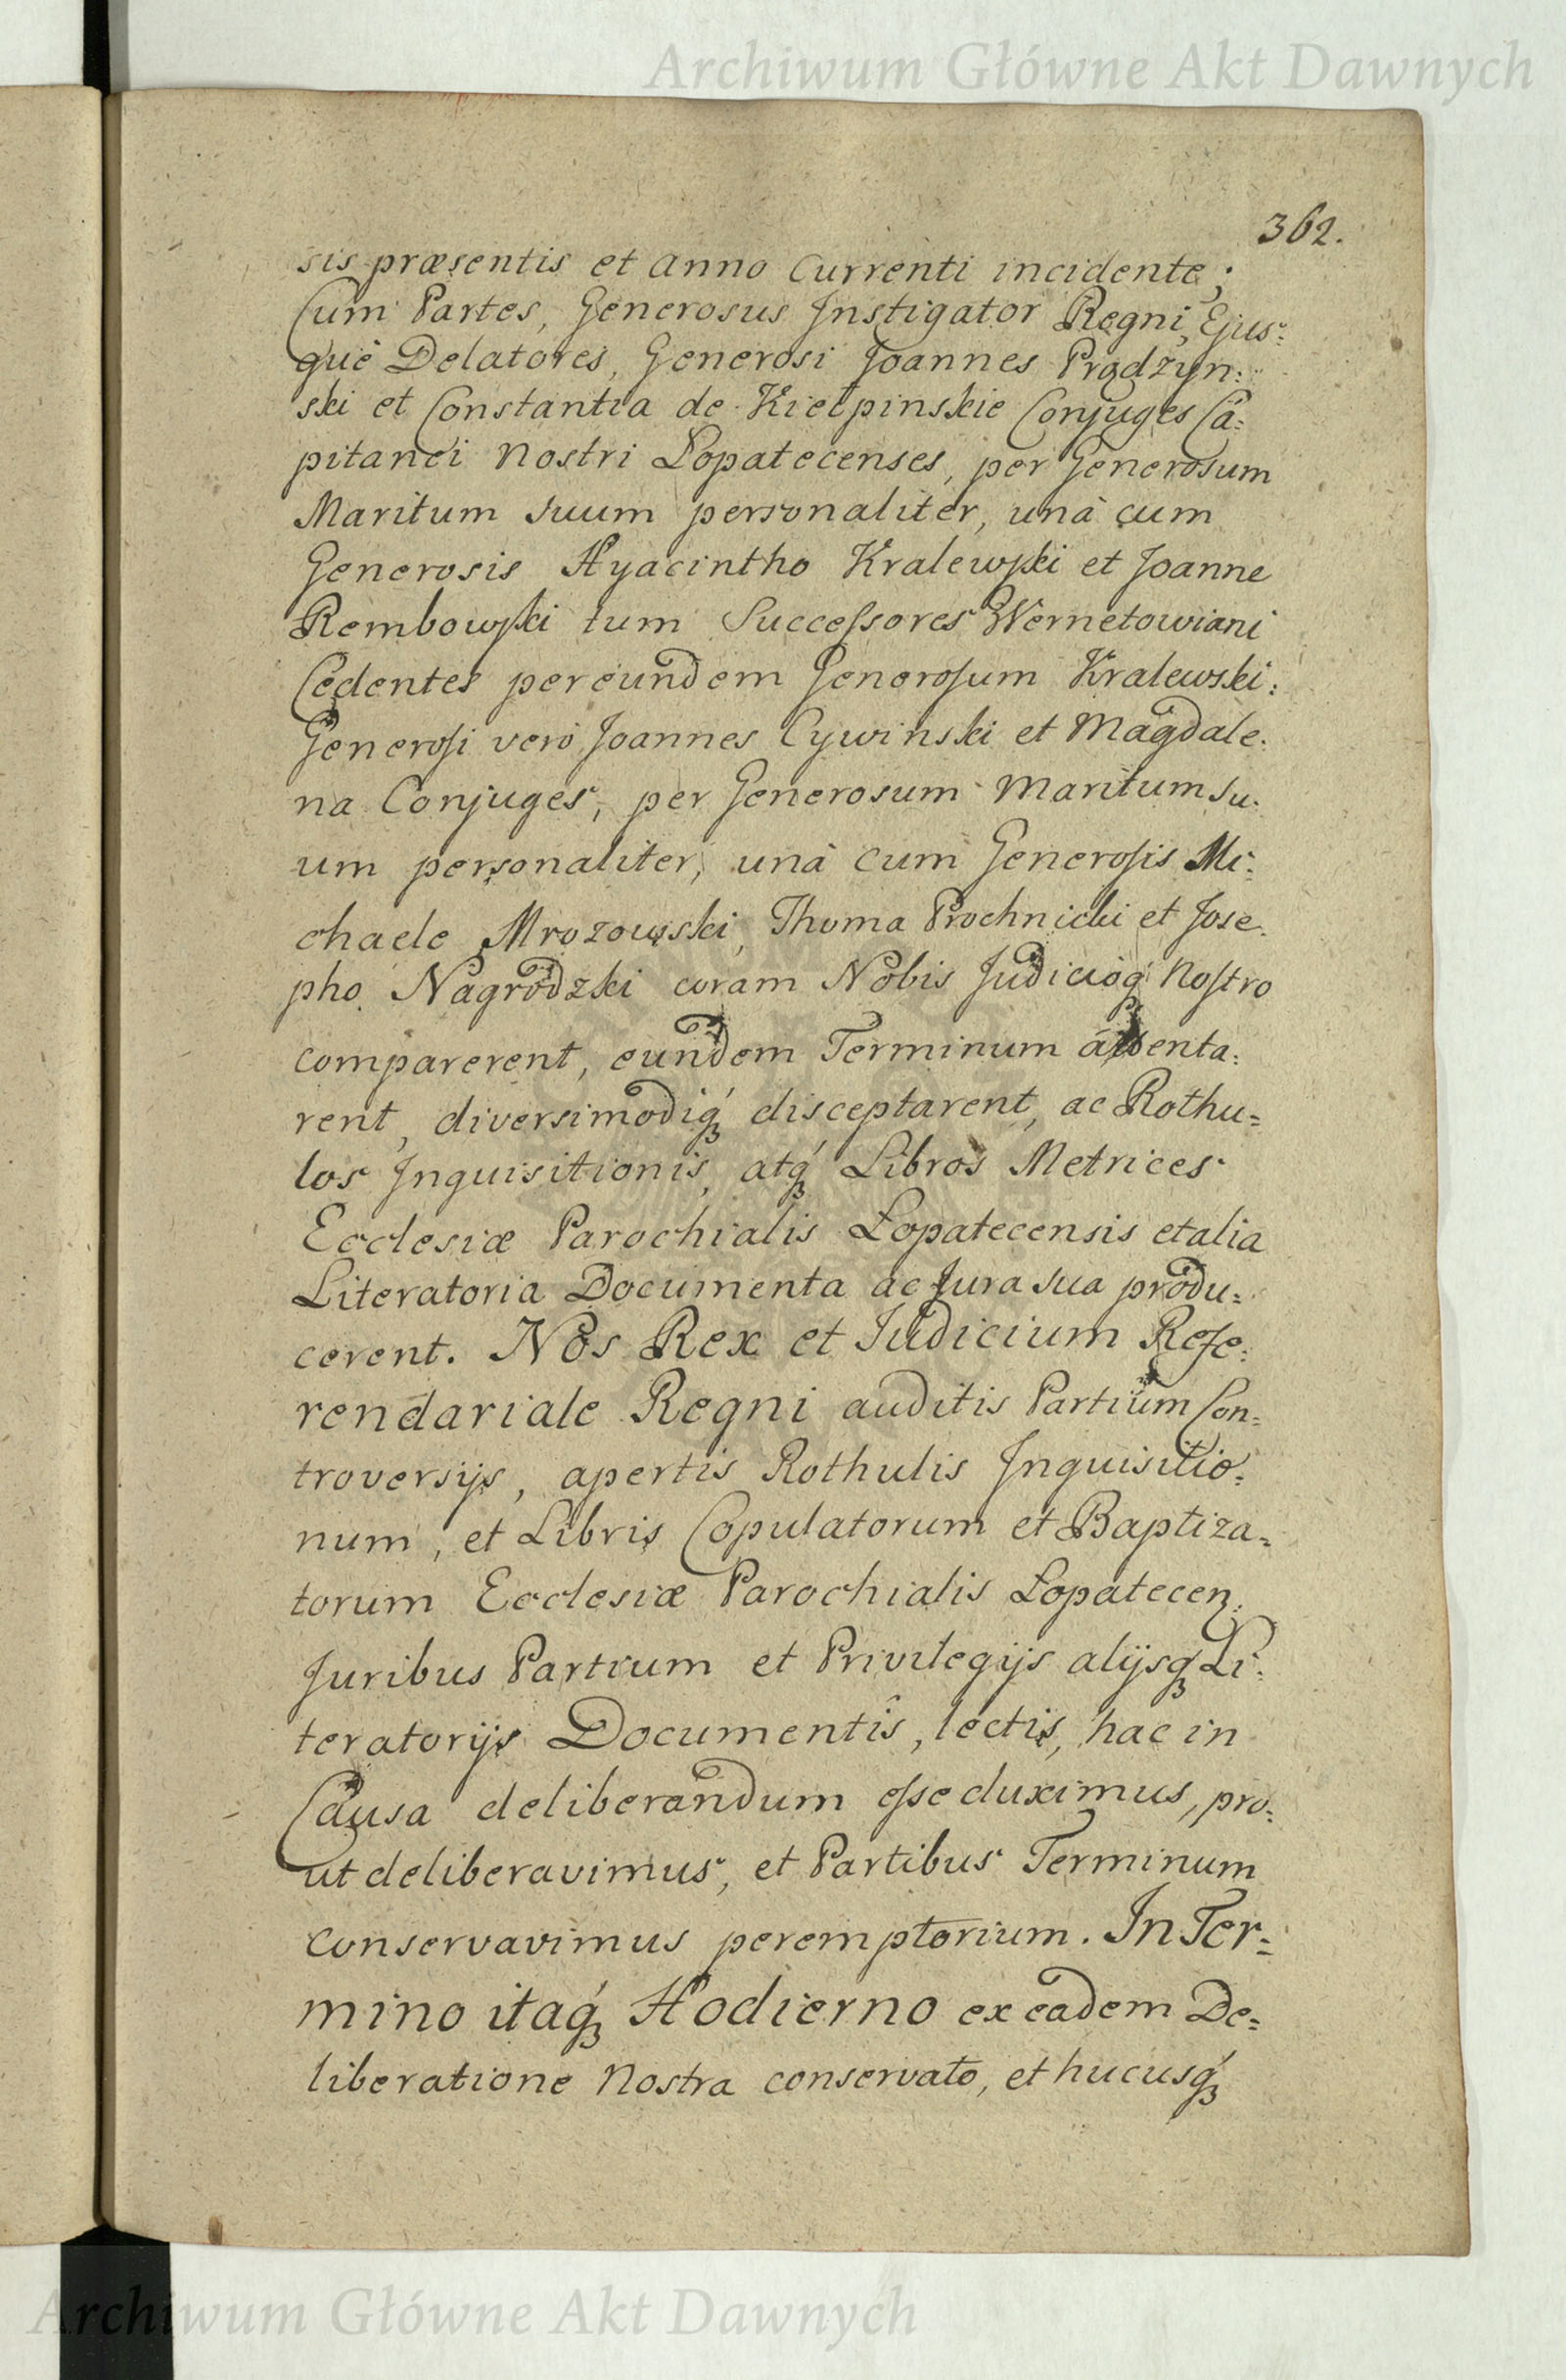 Archiwum Główne Akt Dawnych
362.
sis præsentis et anno Currenti incidente;
Cum Partes, Generosus Instigator Regni, Ejus:
què Delatores, Generosi Joannes Prądzyn:
ski et Constantia de Kiełpinskie Conjuges Ca:
pitanei Nostri Łopatecenses, per Generosum
Maritum suum personaliter, unà cum
Generosis Hyacintho Kralewski et Joanne
Rembowski tum Successores Wernetowiani
Cedentes per eundem Generosum Kralewski:
Generosi verò Joannes Cywinski et Magdale:
na Conjuges, per Generosum Maritum su:
um personaliter, unà cum Generosis Mi:
chaele Mrozowski, Thoma Prochnicki et Jose:
pho Nagrodzki coram Nobis Judicióq́ Nostro
comparerent, eundem Terminum attenta:
rent, diversimodiq́ disceptarent, ac Rothu=
los Inquisitionis, atq́ Libros Metrices
Ecclesiæ Parochialis Łopatecensis et alia
Literatoria Documenta ac Jura sua produ=
cerent. Nos Rex et Judicium Refe:
rendariale Regni auditis Partium Con=
troversijs, apertis Rothulis Inquisitio:
num, et Libris Copulatorum et Baptiza=
torum Ecclesiæ Parochialis Łopatecen:
Juribus Partium et Privilegijs alijsq́ Li:
teratorijs Documentîs, lectis, hac in
Causa deliberandum esse duximus, pro:
ut deliberavimus, et Partibus Terminum
conservavimus peremptorium. In Ter=
mino itaq́ Hodierno ex eadem De=
liberatione Nostra conservato, et hucusq́
Archiwum Główne Akt Dawnych